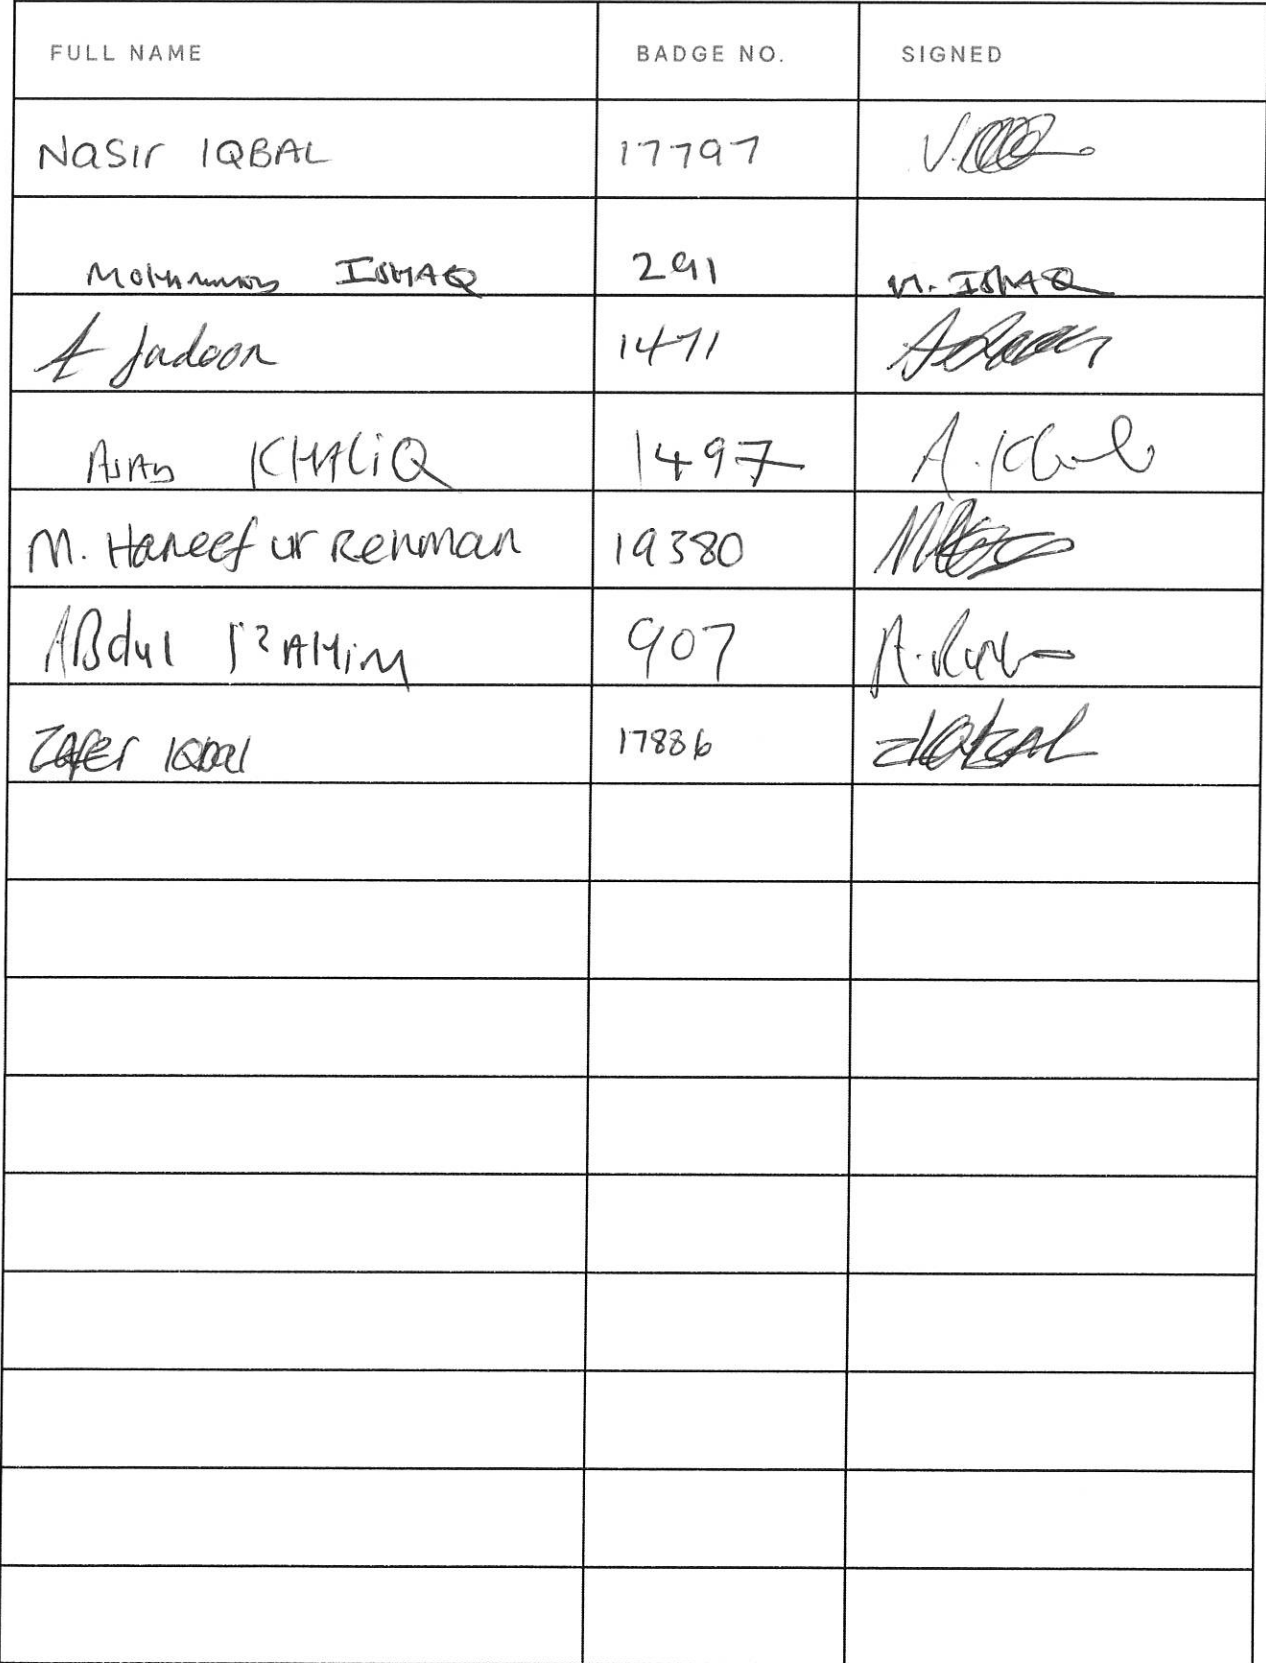 FULL NAME BADGE NO. SIGNED
Nasir IQBAL 17797
Mohammad ISHAQ 291 M. ISHAQ
A Jadoon 1471
KHALiQ 1497
M. Haneef ur Rehman 19380
ABdul RAHiM 907
Zafer Iqbal 17886